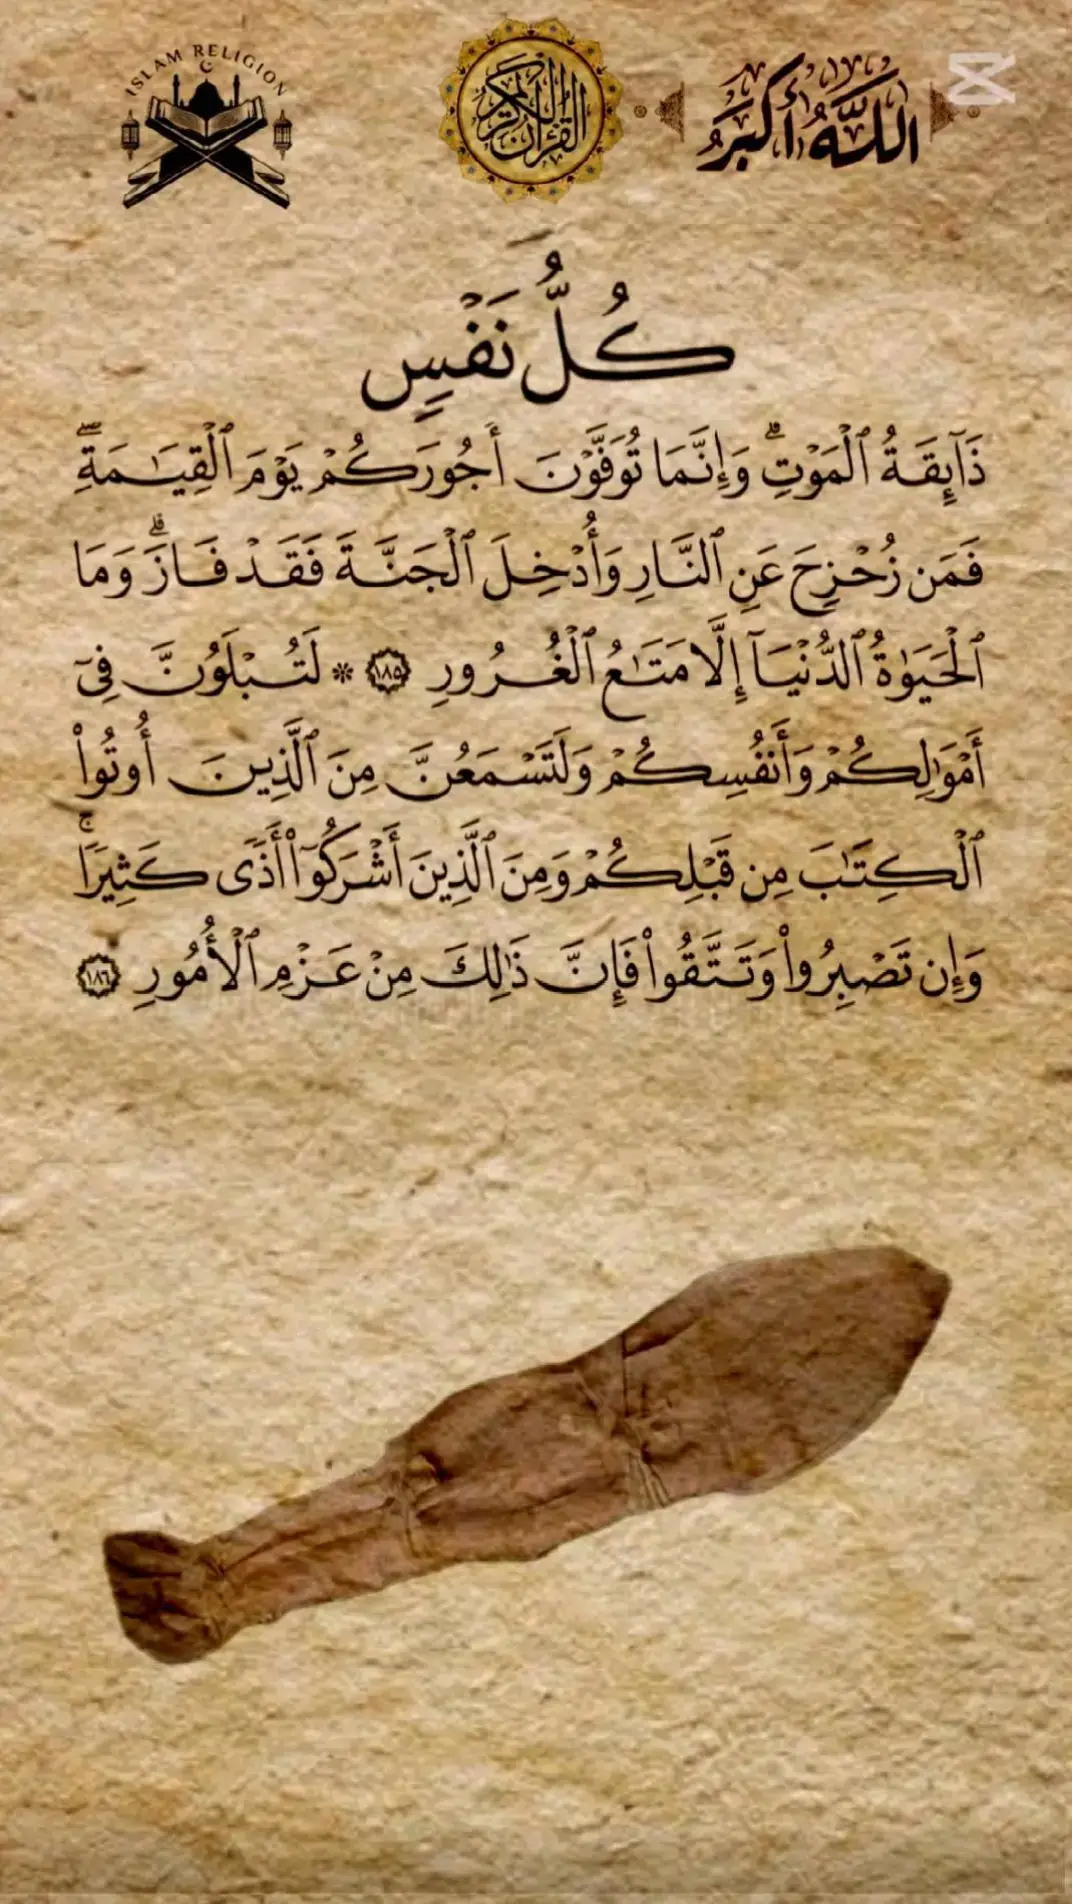 ISLAM RELIGION
القرآن الكريم
اللَّهُ أَكْبَرُ
كُلُّ نَفْسٍ
ذَآئِقَةُ ٱلْمَوْتِۗ وَإِنَّمَا تُوَفَّوْنَ أُجُورَكُمْ يَوْمَ ٱلْقِيَـٰمَةِۖ
فَمَن زُحْزِحَ عَنِ ٱلنَّارِ وَأُدْخِلَ ٱلْجَنَّةَ فَقَدْ فَازَۗ وَمَا
ٱلْحَيَوٰةُ ٱلدُّنْيَآ إِلَّا مَتَـٰعُ ٱلْغُرُورِ ١٨٥ * لَتُبْلَوُنَّ فِىٓ
أَمْوَٰلِكُمْ وَأَنفُسِكُمْ وَلَتَسْمَعُنَّ مِنَ ٱلَّذِينَ أُوتُوا۟
ٱلْكِتَـٰبَ مِن قَبْلِكُمْ وَمِنَ ٱلَّذِينَ أَشْرَكُوٓا۟ أَذًى كَثِيرًاۚ
وَإِن تَصْبِرُوا۟ وَتَتَّقُوا۟ فَإِنَّ ذَٰلِكَ مِنْ عَزْمِ ٱلْأُمُورِ ١٨٦